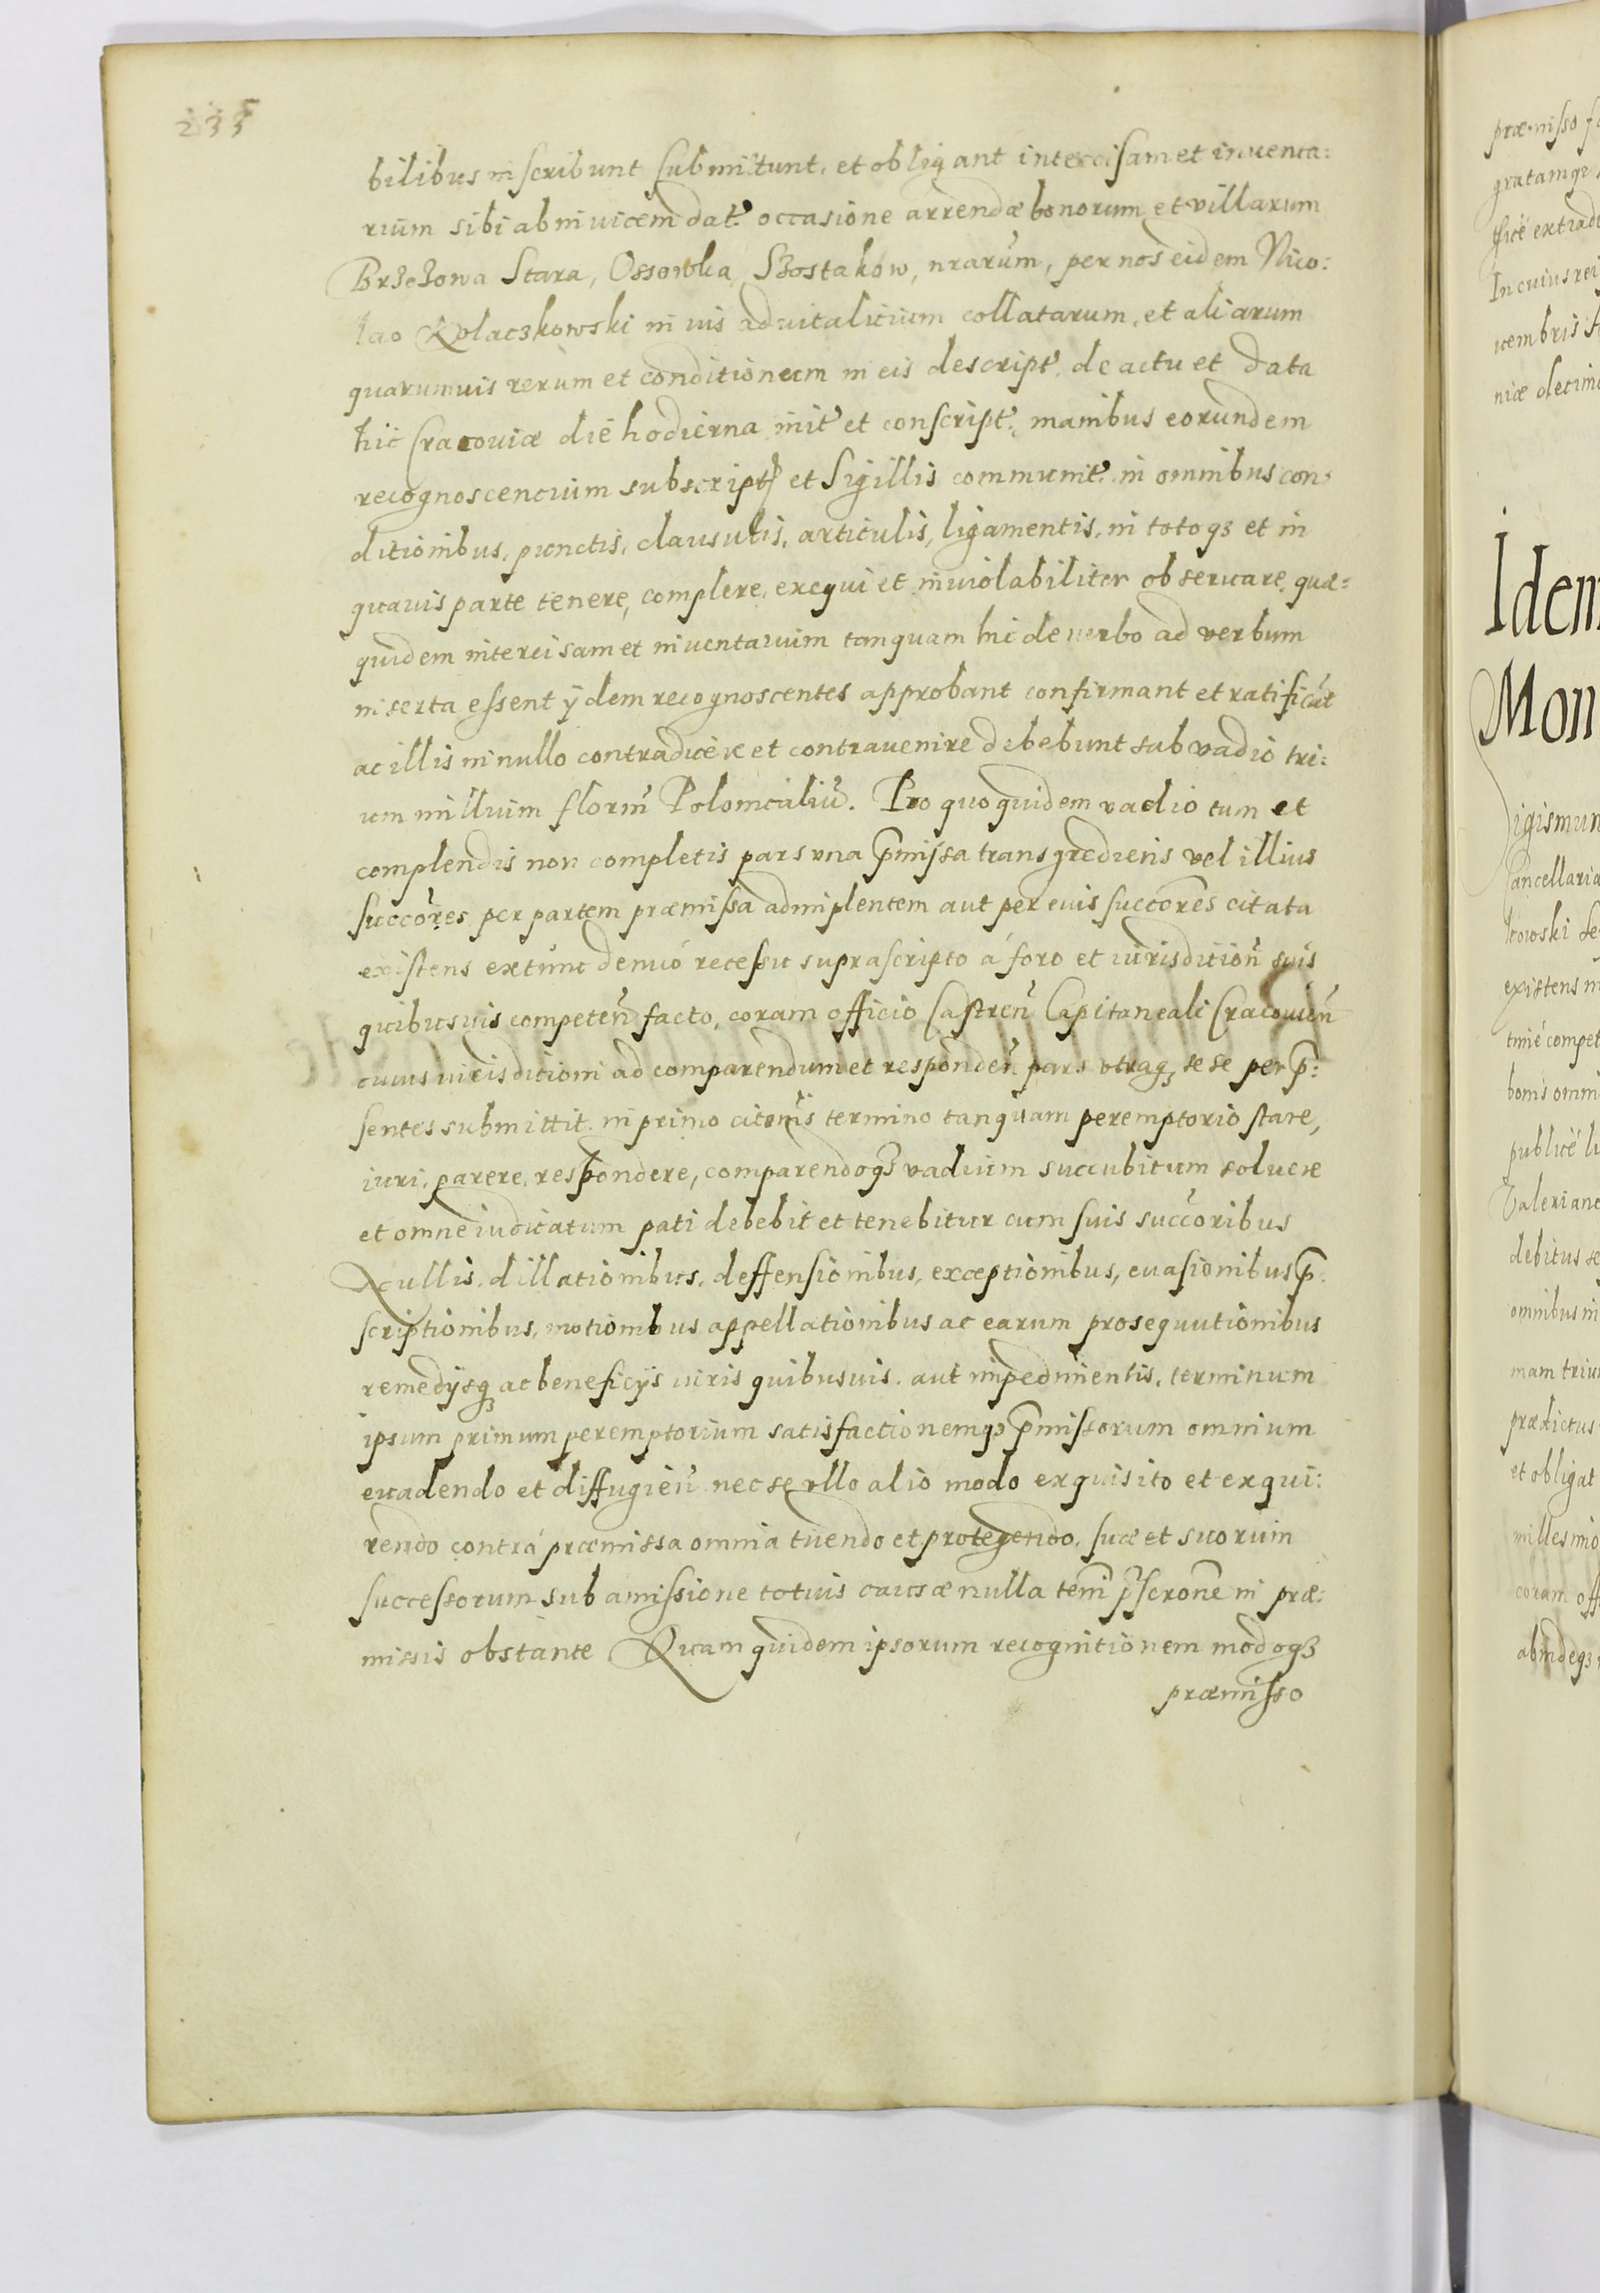 235
bilibus inscribunt submittunt, et obligant intercisam et inuenta:
rium sibi abinuicem dat̃. occasione arrendæ bonorum et villarum
Brzezowa Stara, Ossowka, Szostaków, nrarum, per nos eidem Nico:
lao Kolaczkowski in uis aduitalitium collatarum, et aliarum
quarumuis rerum et conditionum in eis descript̃. de actu et data
hic Cracouiæ die hodierna init̃ et conscript̃. manibus eorundem
recognoscentium subscript̃ et sigillis communit̃. in omnibus con:
ditionibus, punctis, clausulis, articulis, ligamentis, in totoqȝ et in
quauis parte tenere, complere, exequi et inuiolabiliter obseruare, quæ:
quidem intercisam et inuentarium tanquam hic de uerbo ad verbum
inserta essent ÿdem recognoscentes approbant confirmant et ratificãt
ac illis in nullo contradicere et contrauenire debebunt sub vadio tri:
um millium floriñ Polonicaliũ. Pro quo quidem vadio tum et
complendis non completis pars vna p̃missa transgrediens vel illius
succõres per partem præmissa adimplentem aut per euis succores citata
existens extunc denuó recessu suprascripto á foro et iurisditioñ suis
quibusuis competeñ facto, coram officio Castreñ Capitaneali Cracouieñ
cuius iurisditioni ad comparendum et respondeñ pars vtraqȝ sese per p̃:
sentes submittit. in primo citõnis termino tanquam peremptorio stare,
iuri parere, respondere, comparendoqȝ vadium succubitum soluere
et omne iudicatum pati debebit et tenebitur cum suis succõribus
Nullis, dillationibus, deffensionibus, exceptionibus, euasionibus p̃:
scriptionibus, motionibus appellationibus ac earum prosequutionibus
remedÿsqȝ ac beneficÿs iuris quibusuis. aut impedimentis, terminum
ipsum primum peremptorium satisfactionemqȝ p̃missorum omnium
euadendo et diffugieñ nec se vllo alio modo exquisito et exqui:
rendo contrá præmissa omnia tuendo et protegendo, suæ et suorum
successorum sub amissione totuis causæ nulla terñi p̃scrone in præ:
missis obstante Quam quidem ipsorum recognitionem modoqȝ
præmisso
præmisso
gratamqȝ
In cuius rei
uembris
niæ decim
Idem
Mon
Sigismun
Cancellaria
kowski
existens
compet
bonis omni
publicè
Valeriano
debitus se
omnibus in
mam trium
prædictus
et obligat
millesimo
coram off
abindeqȝ